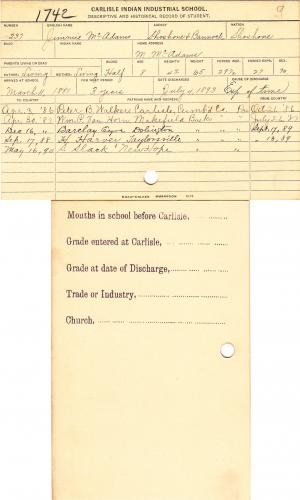 1742
CARLISLE INDIAN INDUSTRIAL SCHOOL.
DESCRIPTIVE AND HISTORICAL RECORD OF STUDENT.
NUMBER ENGLISH NAME AGENCY NATION
237 Jimmie McAdams Shoshone & Bannock Shoshone
INDIAN NAME HOME ADDRESS
M McAdams
PARENTS LIVING OR DEAD BLOOD AGE HEIGHT WEIGHT
Living Living Half 8
ARRIVED AT SCHOOL FOR WHAT PERIOD DATE DISCHARGED CAUSE OF DISCHARGE
March 11, 1881 3 years July 4, 1893 Exp of time
TO COUNTRY PATRONS NAME AND ADDRESS FROM COUNTRY
Apr. 3 '86 Peter B. Walker Carlisle, Cumb'd Co. Pa Oct 21 '86
Apr. 30, 87 Wm P. Van Horn Wakefield Bucks " "
Dec 16, " Barclay Eyre Dolington " " Sept 17, 89
Sep. 17, 88 H. Harvey Taylorsville " "
May 16, 90 S. Slack Newtown "
Months in school before Carlisle,
Grade entered at Carlisle,
Grade at date of Discharge,
Trade or Industry,
Church.